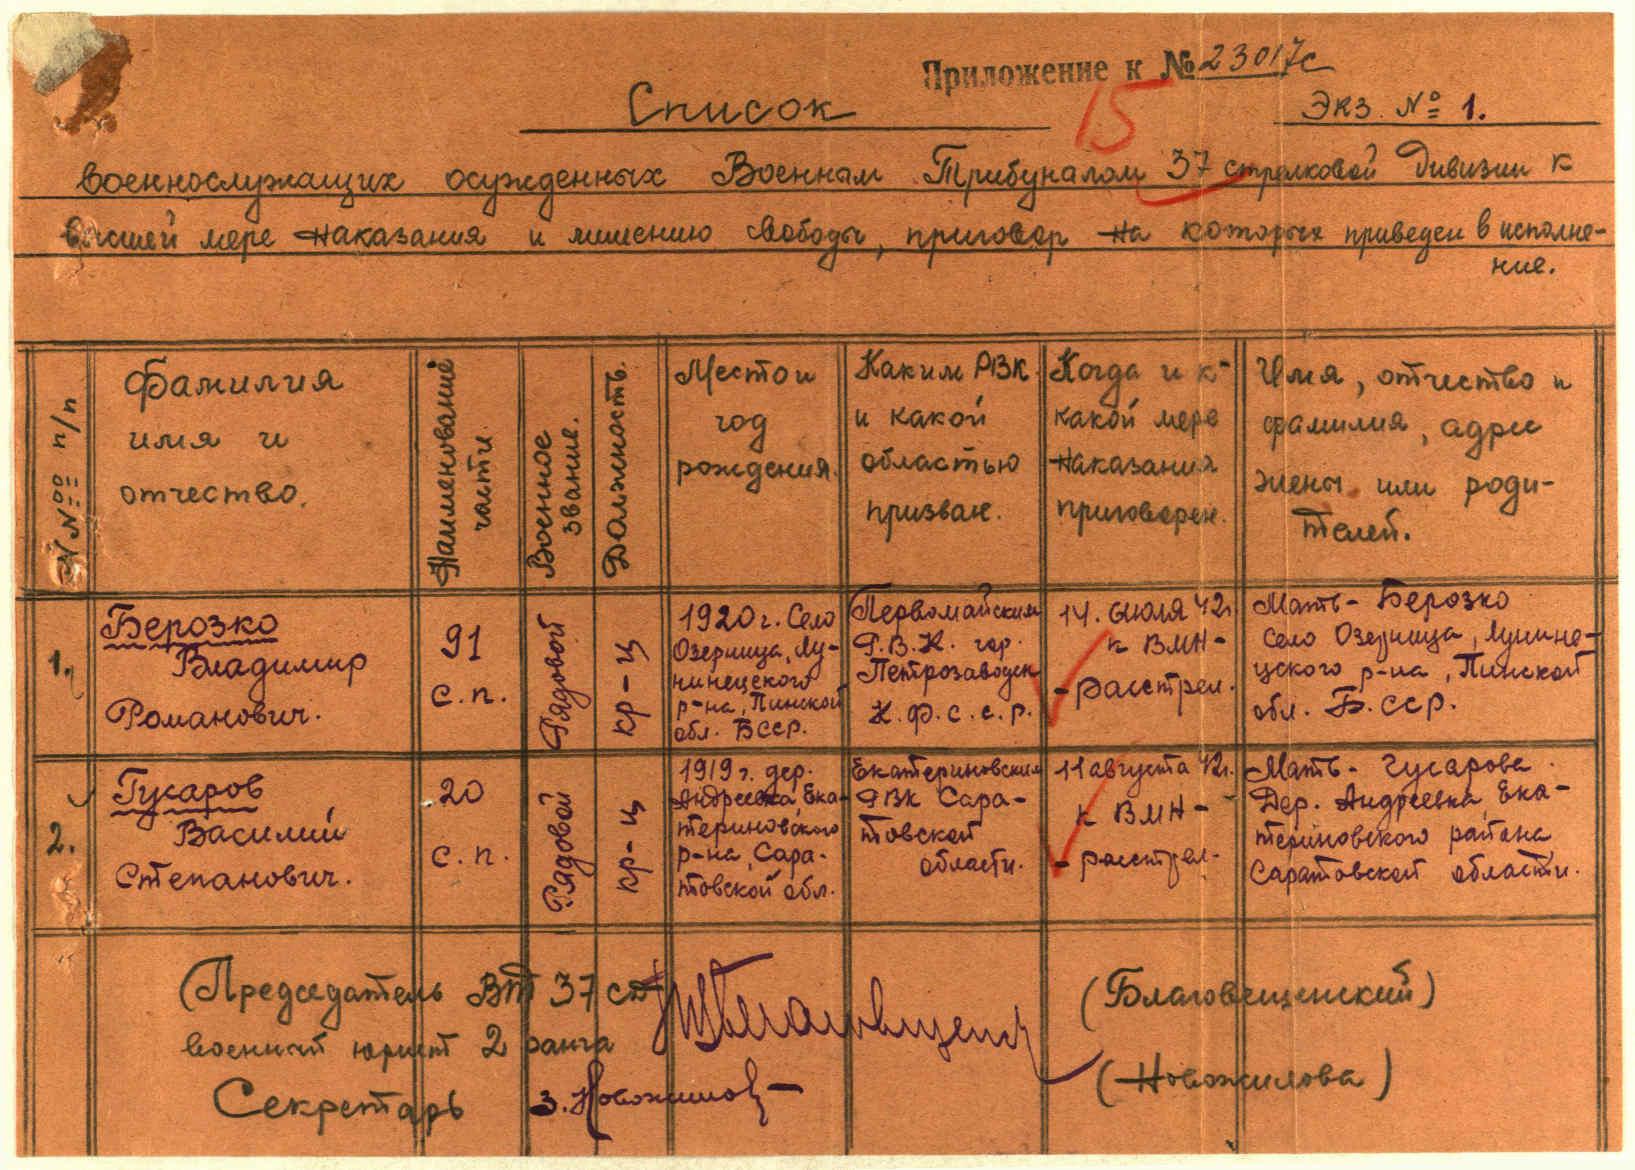 Приложение к № 23017с
15
Список
Экз. № 1.
военнослужащих осужденных Военным Трибуналом 37 стрелковой дивизии к
высшей мере наказания и лишению свободы, приговор на которых приведен в исполне-
ние.
№№ п/п
Фамилия
имя и
отчество.
Наименование
части.
Военное
звание.
Должность.
Место и
год
рождения.
Каким РВК
и какой
областью
призван.
Когда и к
какой мере
наказания
приговорен.
Имя, отчество и
фамилия, адрес
жены или роди-
телей.
1.
Берозко
Владимир
Романович.
91
с.п.
Рядовой
кр-ц
1920 г. Село
Озерница, Лу-
нинецского
р-на, Пинской
обл. БССР.
Первомайским
Р.В.К. гор.
Петрозаводск
К.Ф.С.С.Р.
14. июля 42г.
к ВМН-
- расстрел.
Мать- Берозко
село Озерница, Лунине-
цского р-на, Пинской
обл. Б.ССР.
2.
Гусаров
Василий
Степанович.
20
с.п.
Рядовой
кр-ц
1919 г. дер.
Андреевка Ека-
териновского
р-на, Сара-
товской обл.
Екатериновским
РВК Сара-
товской
области.
11 августа 42г.
к ВМН-
- расстрел.
Мать- Гусарова
Дер. Андреевка, Ека-
териновского района
Саратовской области.
(Председатель ВТ 37 сд
(Благовещенский)
военный юрист 2 ранга
Секретарь З. Новожилов
(Новожилова)